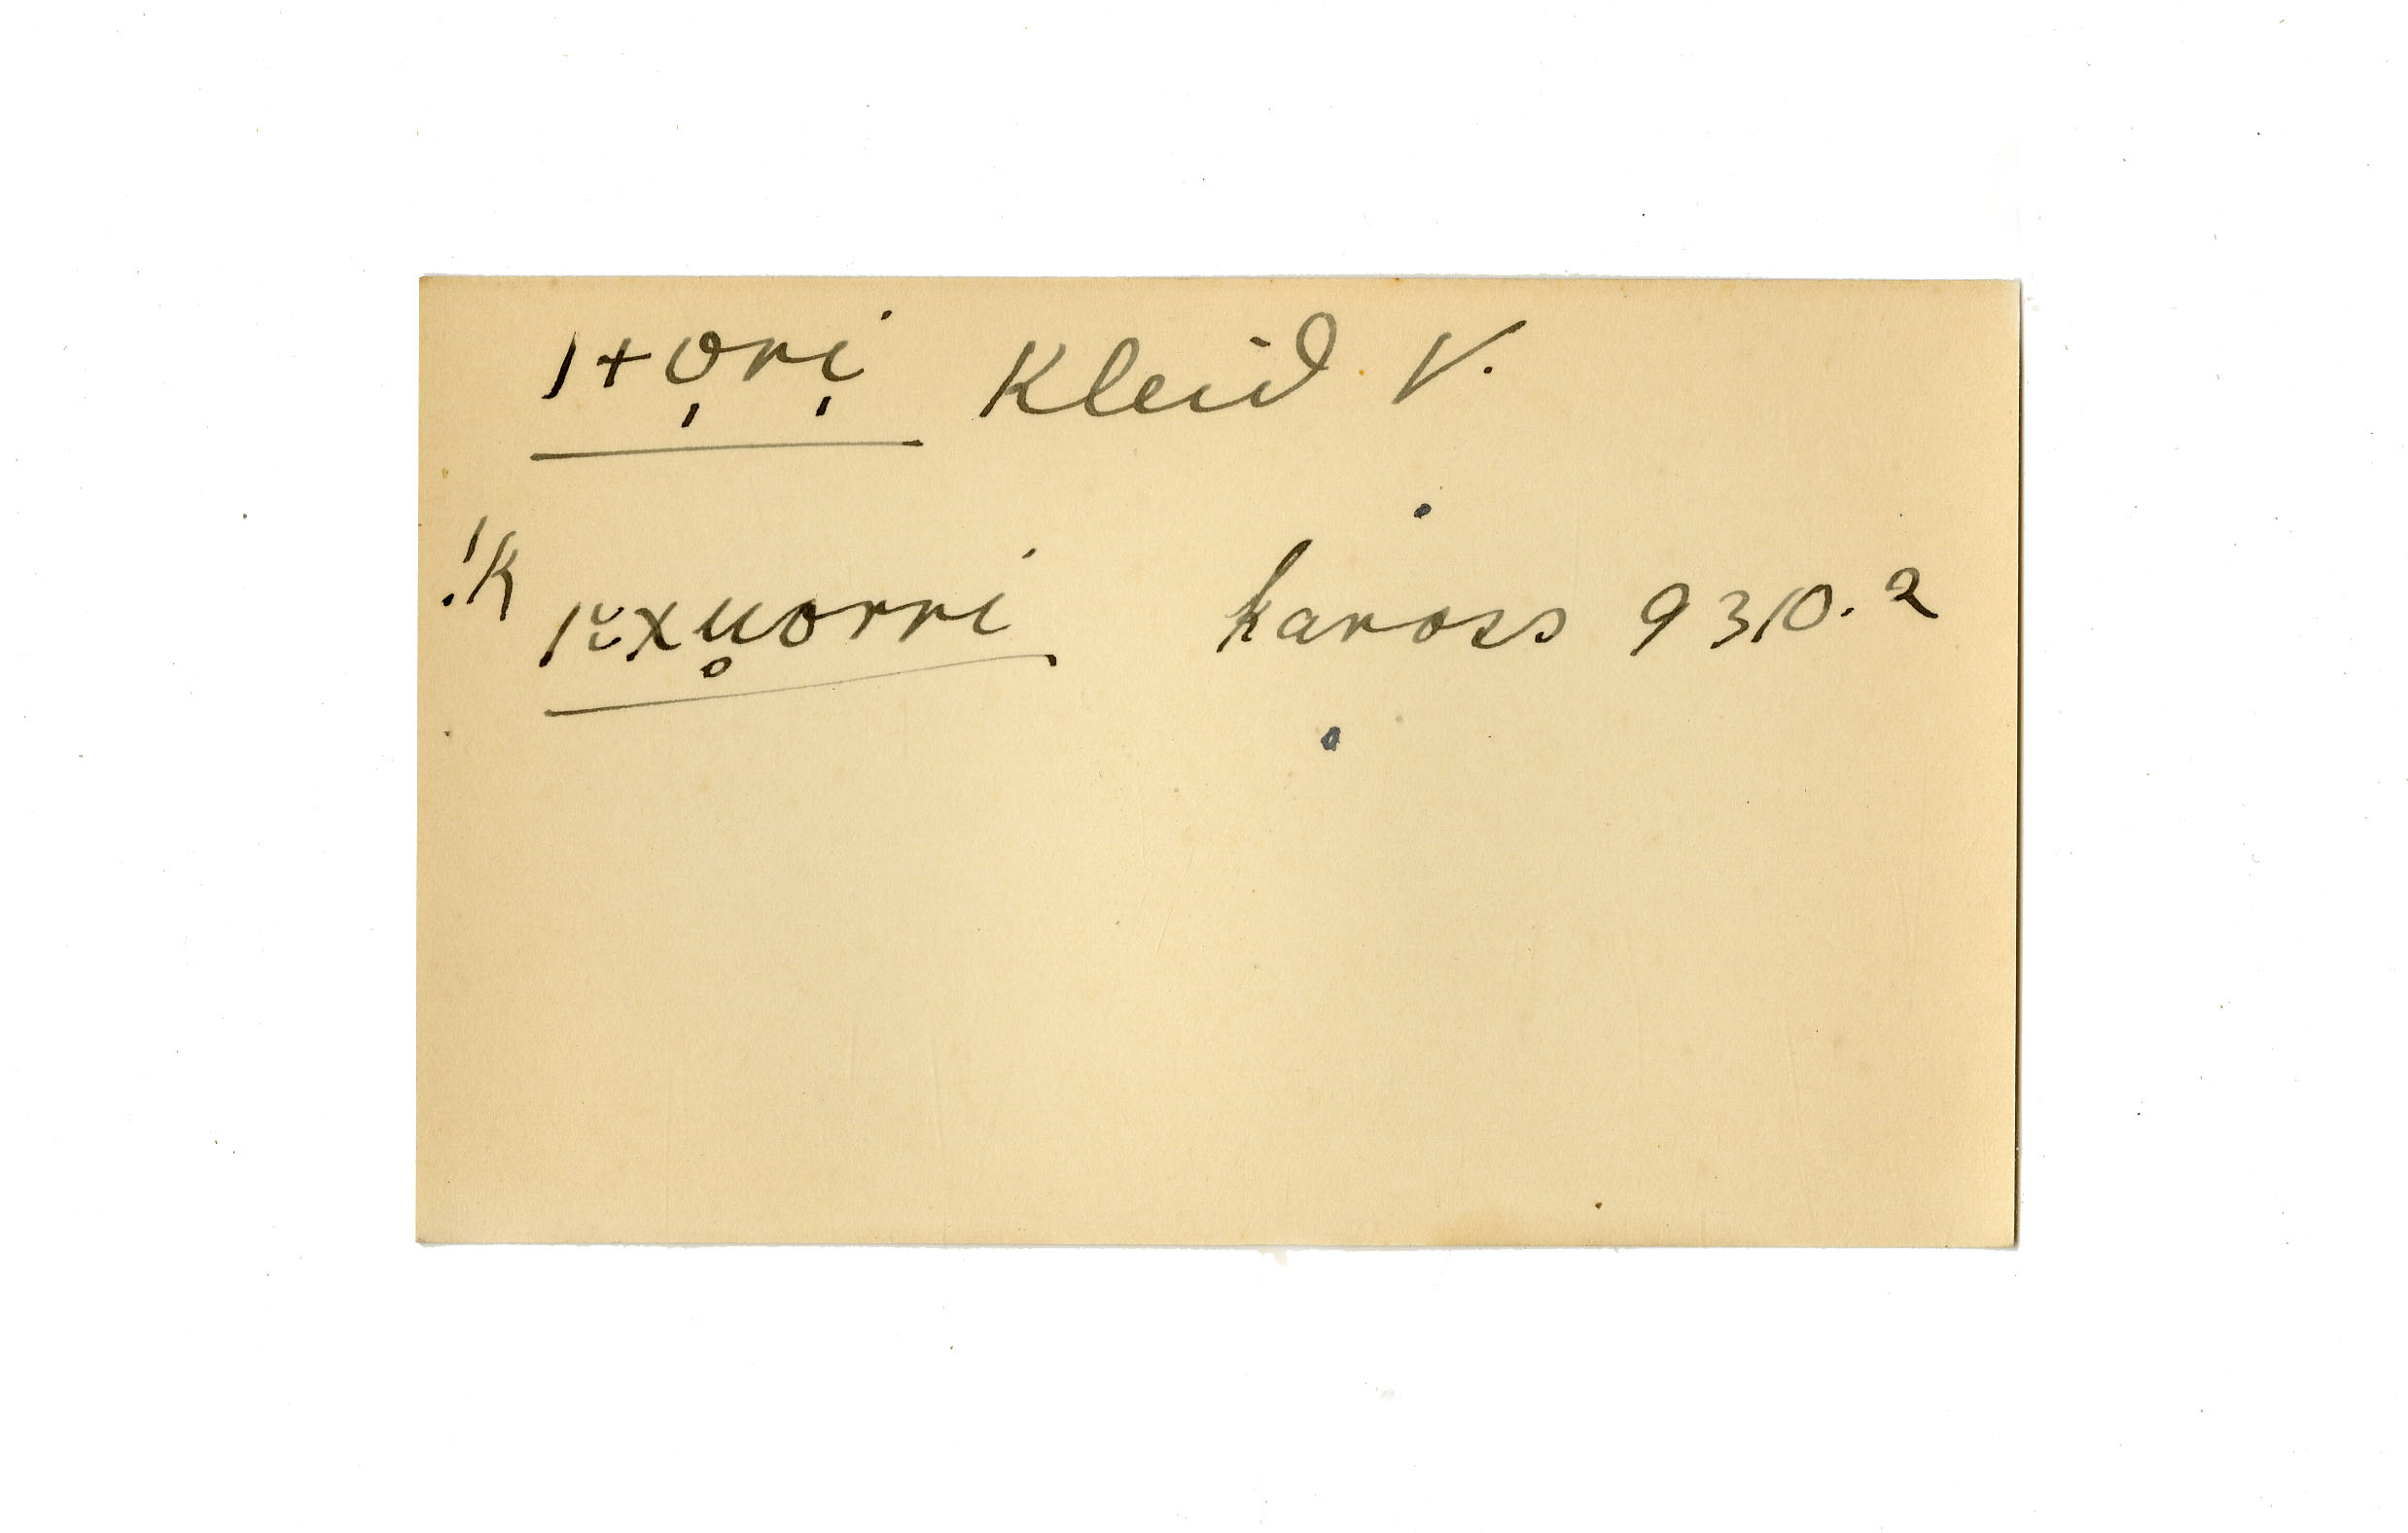 |+o̩ri̩ Kleid V.
!k |ĭ̯xu̥orri kaross 9310.2